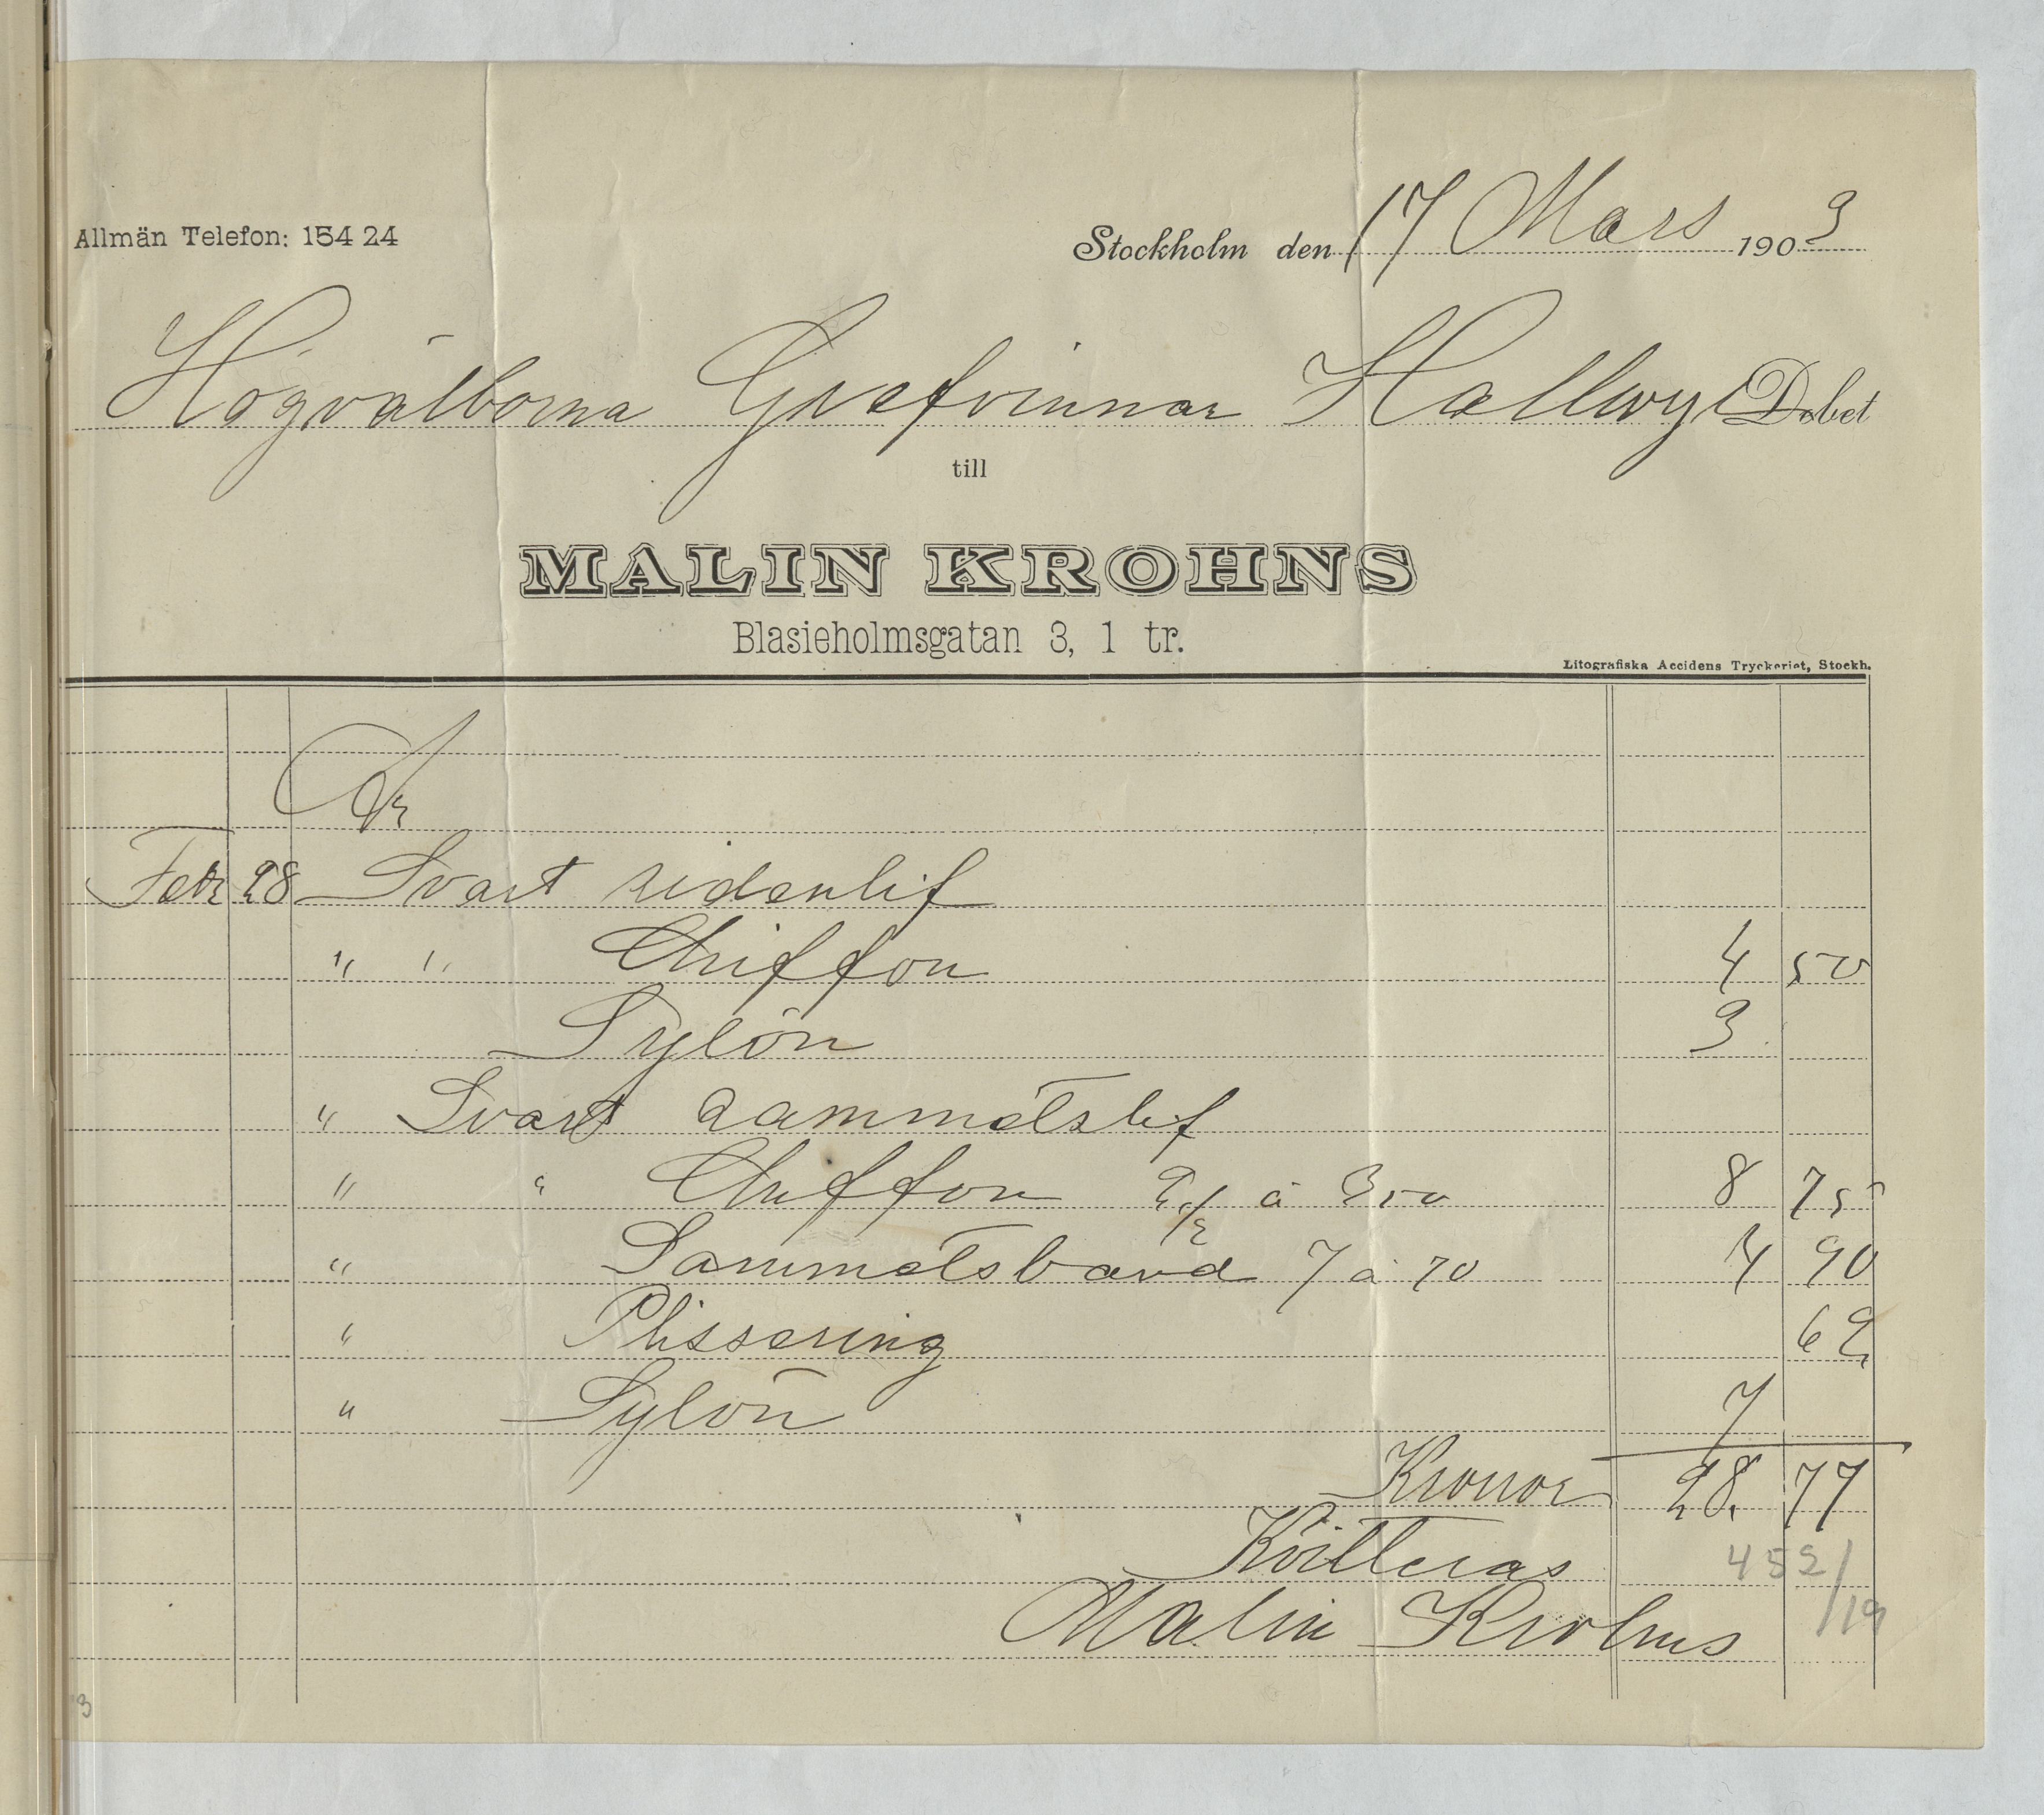 Allmän Telefon: 154 24
Stockholm den 17 Mars 1903
Högvälborna Grefvinnan Hallwyl Debet
till
MALIN KROHNS
Blasieholmsgatan 3, 1 tr.
Litografiska Accidens Tryckeriet, Stockh.
Febr 28 Svart sidenlif
" " Chiffon 4 50
Sylön 3
" Svart sammetslif
" " Chiffon 2 1/2 á 350 8 75
" Sammetsband 7 á 70 4 90
" Plissering 62
" Sylön 7
Kronor 28 77
Kvitteras 452/19
Malin Krohns
3